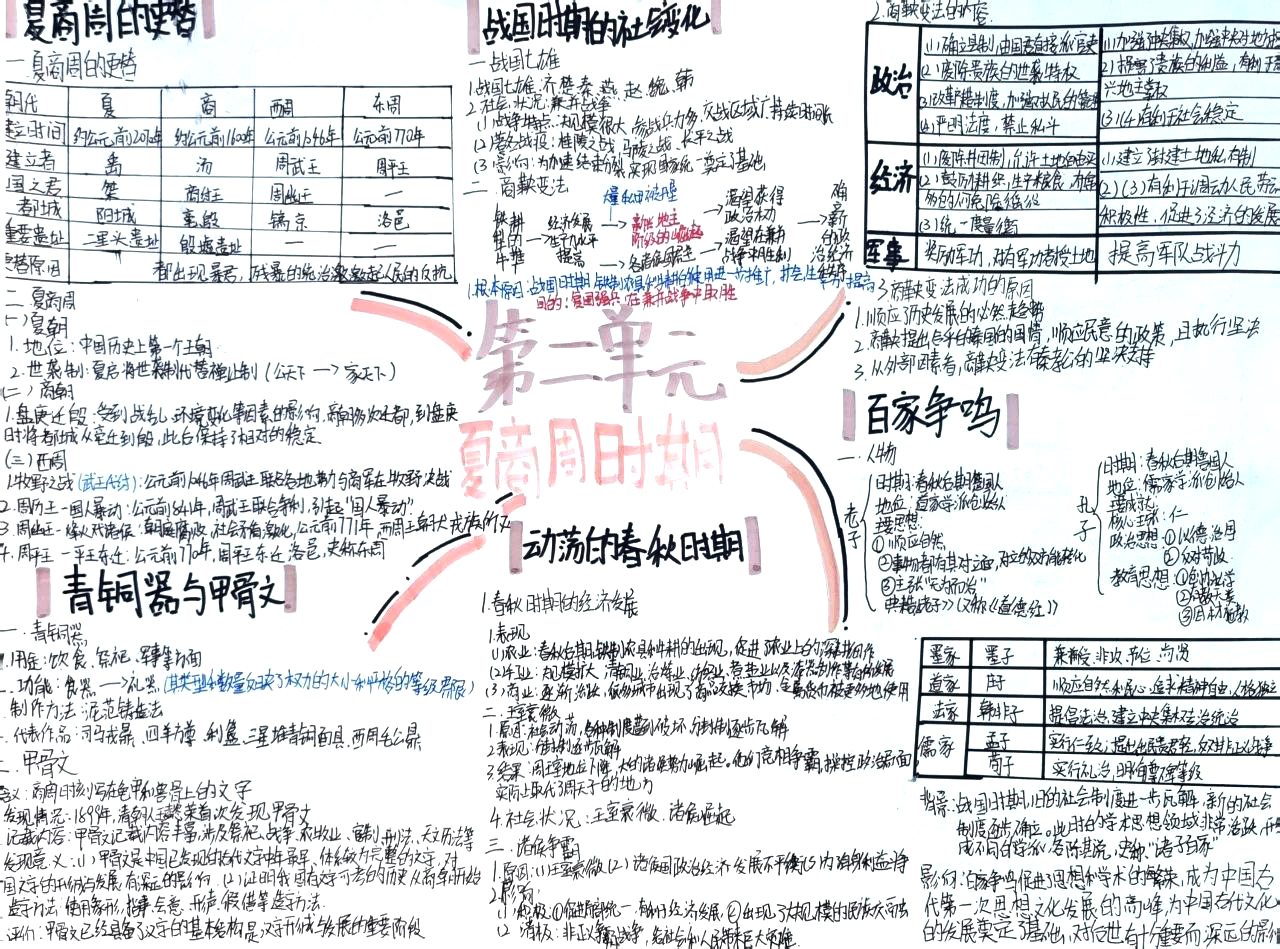 夏商周的更替
一 夏商周的更替
朝代 夏 商 西周 东周
建立时间 约公元前2070年 约公元前1600年 公元前1046年 公元前770年
建立者 禹 汤 周武王 周平王
国之君 桀 商纣王 周幽王 —
都城 阳城 亳、殷 镐京 洛邑
重要遗址 二里头遗址 殷墟遗址 — —
更替原因 都出现暴君，残暴的统治激起人民的反抗
二 夏商周
(一)夏朝
1. 地位：中国历史上第一个王朝
2. 世袭制：夏启将世袭制代替禅让制 (公天下 → 家天下)
(二) 商朝
1.盘庚迁殷：受到战乱、环境变化等因素的影响，商朝多次迁都，到盘庚
时将都城从亳迁到殷，此后保持了相对的稳定
(三)西周
1.牧野之战 (武王伐纣)：公元前1046年周武王联合各地势力与商军在牧野决战
2. 周厉王—国人暴动：公元前841年，引起“国人暴动”
3. 周幽王—烽火戏诸侯：朝廷腐败，社会矛盾激化，公元前771年，西周王朝
4. 周平王—平王东迁：公元前770年，周平王东迁洛邑，史称东周
青铜器与甲骨文
一. 青铜器
1.用途：饮食、祭祀、军事等方面
二.功能：食器 → 礼器 (其类型和数量反映了权力的大小和严格的等级)
制作方法：泥范铸造法
代表作品：司母戊鼎、四羊方尊、利簋、三星堆青铜面具、西周毛公鼎
二. 甲骨文
含义：商周时刻写在龟甲和兽骨上的文字
发现情况：1899年，清朝人王懿荣首次发现甲骨文
记载内容：甲骨文记载内容丰富，涉及祭祀、战争、农牧业、官制、刑法、天文历法等
发现意义：(1) 甲骨文是中国已发现的古代文字中年代最早、体系较为完整的文字，对
国文字的形成与发展有深远的影响. (2) 证明我国有文字可考的历史从商朝开始
造字方法：使用象形、指事、会意、形声、假借等造字方法.
评价：甲骨文已经具备了汉字的基本结构，是汉字形成与发展的重要阶段
战国时期的社会变化
一 战国七雄
1.战国七雄：齐、楚、秦、燕、赵、魏、韩
2.社会状况：兼并战争
(1) 战争特点：规模很大，参战兵力多，交战区域广，持续时间长
(2) 著名战役：桂陵之战、马陵之战、长平之战
(3) 影响：为加速结束分裂、实现国家统一奠定了基础
二 商鞅变法
铁犁的牛耕 → 经济发展 生产水平提高
新兴地主阶级的崛起 → 渴望获得政治权力
各诸侯国国王 → 渴望在兼并战争中胜利
1.根本原因：战国时期，铁制农具和牛耕的使用进一步推广，社会生产力提高
目的：富国强兵，在兼并战争中取胜
第一单元
夏商周时期
动荡的春秋时期
1.春秋时期的经济发展
1.表现
(1)农业：春秋后期，铁制农具和牛耕的出现，促进了农业上的深耕细作
(2)手工业：规模扩大，青铜业、冶铁业、纺织业、煮盐业以及漆器制作等有的发展
(3)商业：逐渐活跃，很多城市出现了商品交换市场，金属货币被更多地使用
二.王室衰微
1.原因：社会动荡，各种制度遭到破坏，分封制逐步瓦解
2.表现：分封制逐步瓦解
3.结果：周王室地位下降，大的诸侯势力崛起。他们竞相争霸，操控政治局面
实际上取代了周天子的地位
4.社会状况：王室衰微、诸侯崛起
三. 诸侯争霸
1.原因：(1)王室衰微 (2) 诸侯国政治经济发展不平衡 (3)为
2.影响：
(1) 积极：①促进国家统一，有利于经济发展，②出现了大规模的民族大交融
(2) 消极：给社会和人民带来巨大灾难.
2.商鞅变法的内容
政治
(1)确立县制，由国君直接派官吏
(2)废除贵族的世袭特权
(3)改革户籍制度，加强对人民的管理
(4)严明法度，禁止私斗
(1)加强中央集权，加强中央对地方
(2) 损害了贵族的利益，有利于新
兴地主掌权
(3) (4) 有利于社会稳定
经济
(1)废除井田制，允许土地自由买
(2)鼓励耕织，生产粮食、布帛
多的人可免除徭役
(3)统一度量衡
(1)建立封建土地私有制
(2) (3) 有利于调动人民劳动
积极性，促进了经济的发展
军事 奖励军功，对有军功者授土地 提高军队战斗力
3.商鞅变法成功的原因
1.顺应了历史发展的必然趋势
2.商鞅提出合乎秦国的国情，顺应民意的政策，且执行坚决
3. 从外部因素看，商鞅变法有秦孝公的坚决支持
百家争鸣
一. 人物
老子
时期：春秋后期楚国人
地位：道家学派创始人
主要思想：
①顺应自然
②事物都有其对立面，对立的双方能转化
③主张“无为而治”
典籍《老子》(又称《道德经》)
孔子
时期：春秋后期鲁国人
地位：儒家学派创始人
主要成就：
核心主张：仁
政治思想：①以德治国
②反对苛政
教育思想：①创办私学
③因材施教
墨家 墨子 兼爱、非攻、节俭、尚贤
道家 庄子 顺应自然和民心，追求精神自由，人格独立
法家 韩非子 提倡法治，建立中央集权法治统治
儒家 孟子 实行仁政，提出民贵君轻，反对非正义战争
荀子 实行礼治，明确尊卑等级
背景：战国时期，旧的社会制度进一步瓦解，新的社会
制度逐步确立。此时的学术思想领域非常活跃，形
成不同的学派，各陈其说，史称“诸子百家”
影响：百家争鸣促进了思想和学术的繁荣，成为中国古
代第一次思想文化发展的高峰，为中国古代文化
的发展奠定了基础，对后世有十分重要而深远的影响